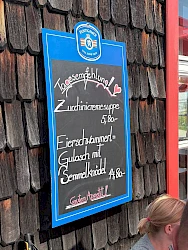 Tagesempfehlung!
Zucchinicremesuppe
5,80
Eierschwammerl=
Gulasch mit
Semmelknödel 14,80
Guten Appetit!